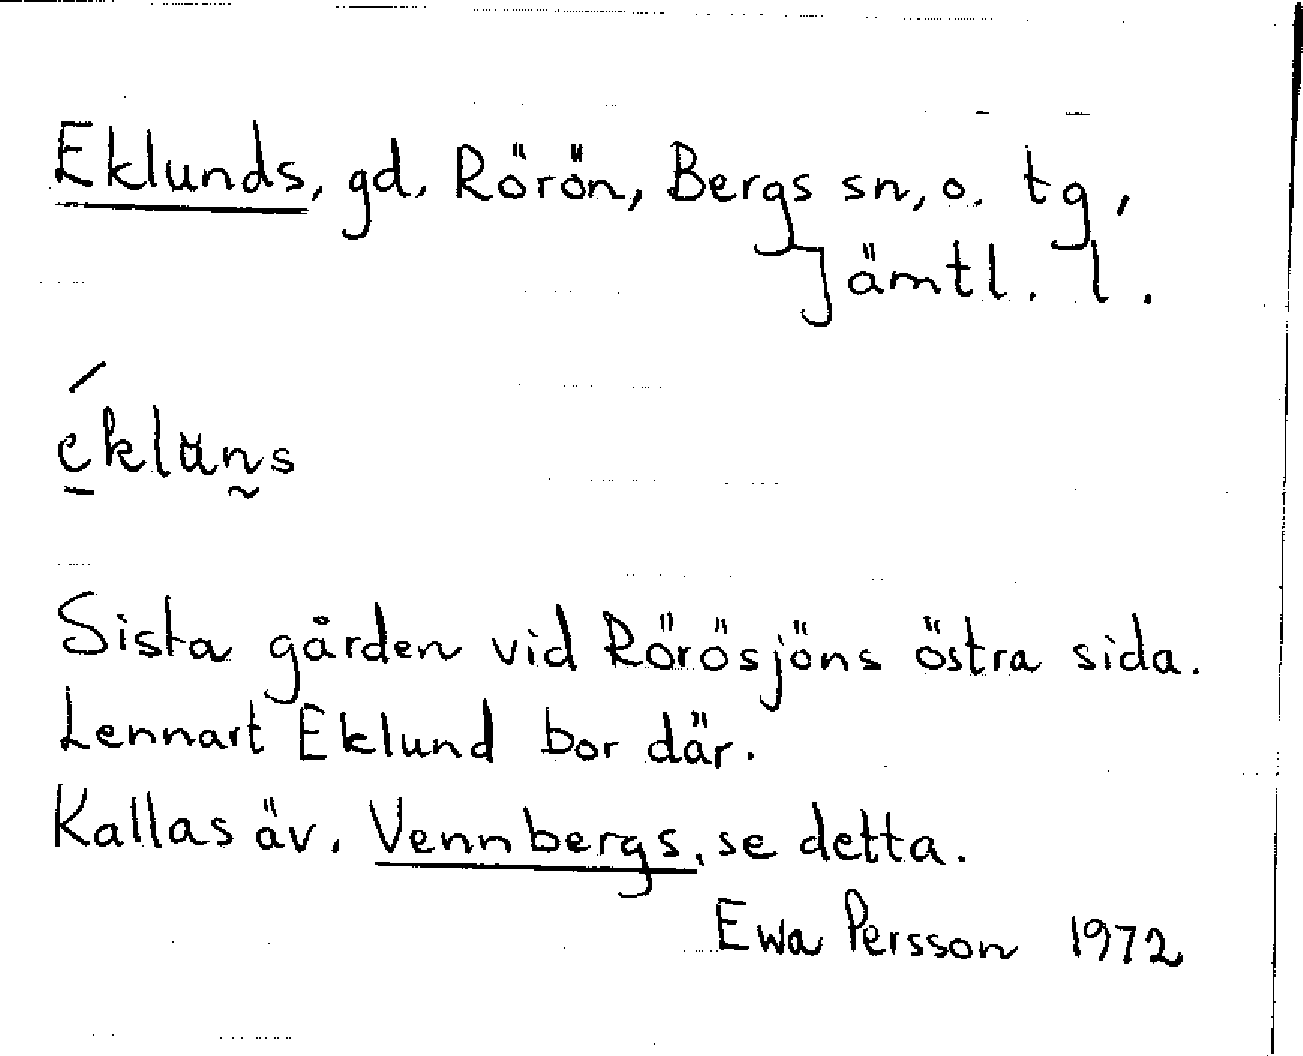 Eklunds, gd, Rörön, Bergs sn, o. tg,
Jämtl. l.
ékluṉs
Sista gården vid Rörösjöns östra sida.
Lennart Eklund bor där.
Kallas äv. Vennbergs, se detta.
Ewa Persson 1972